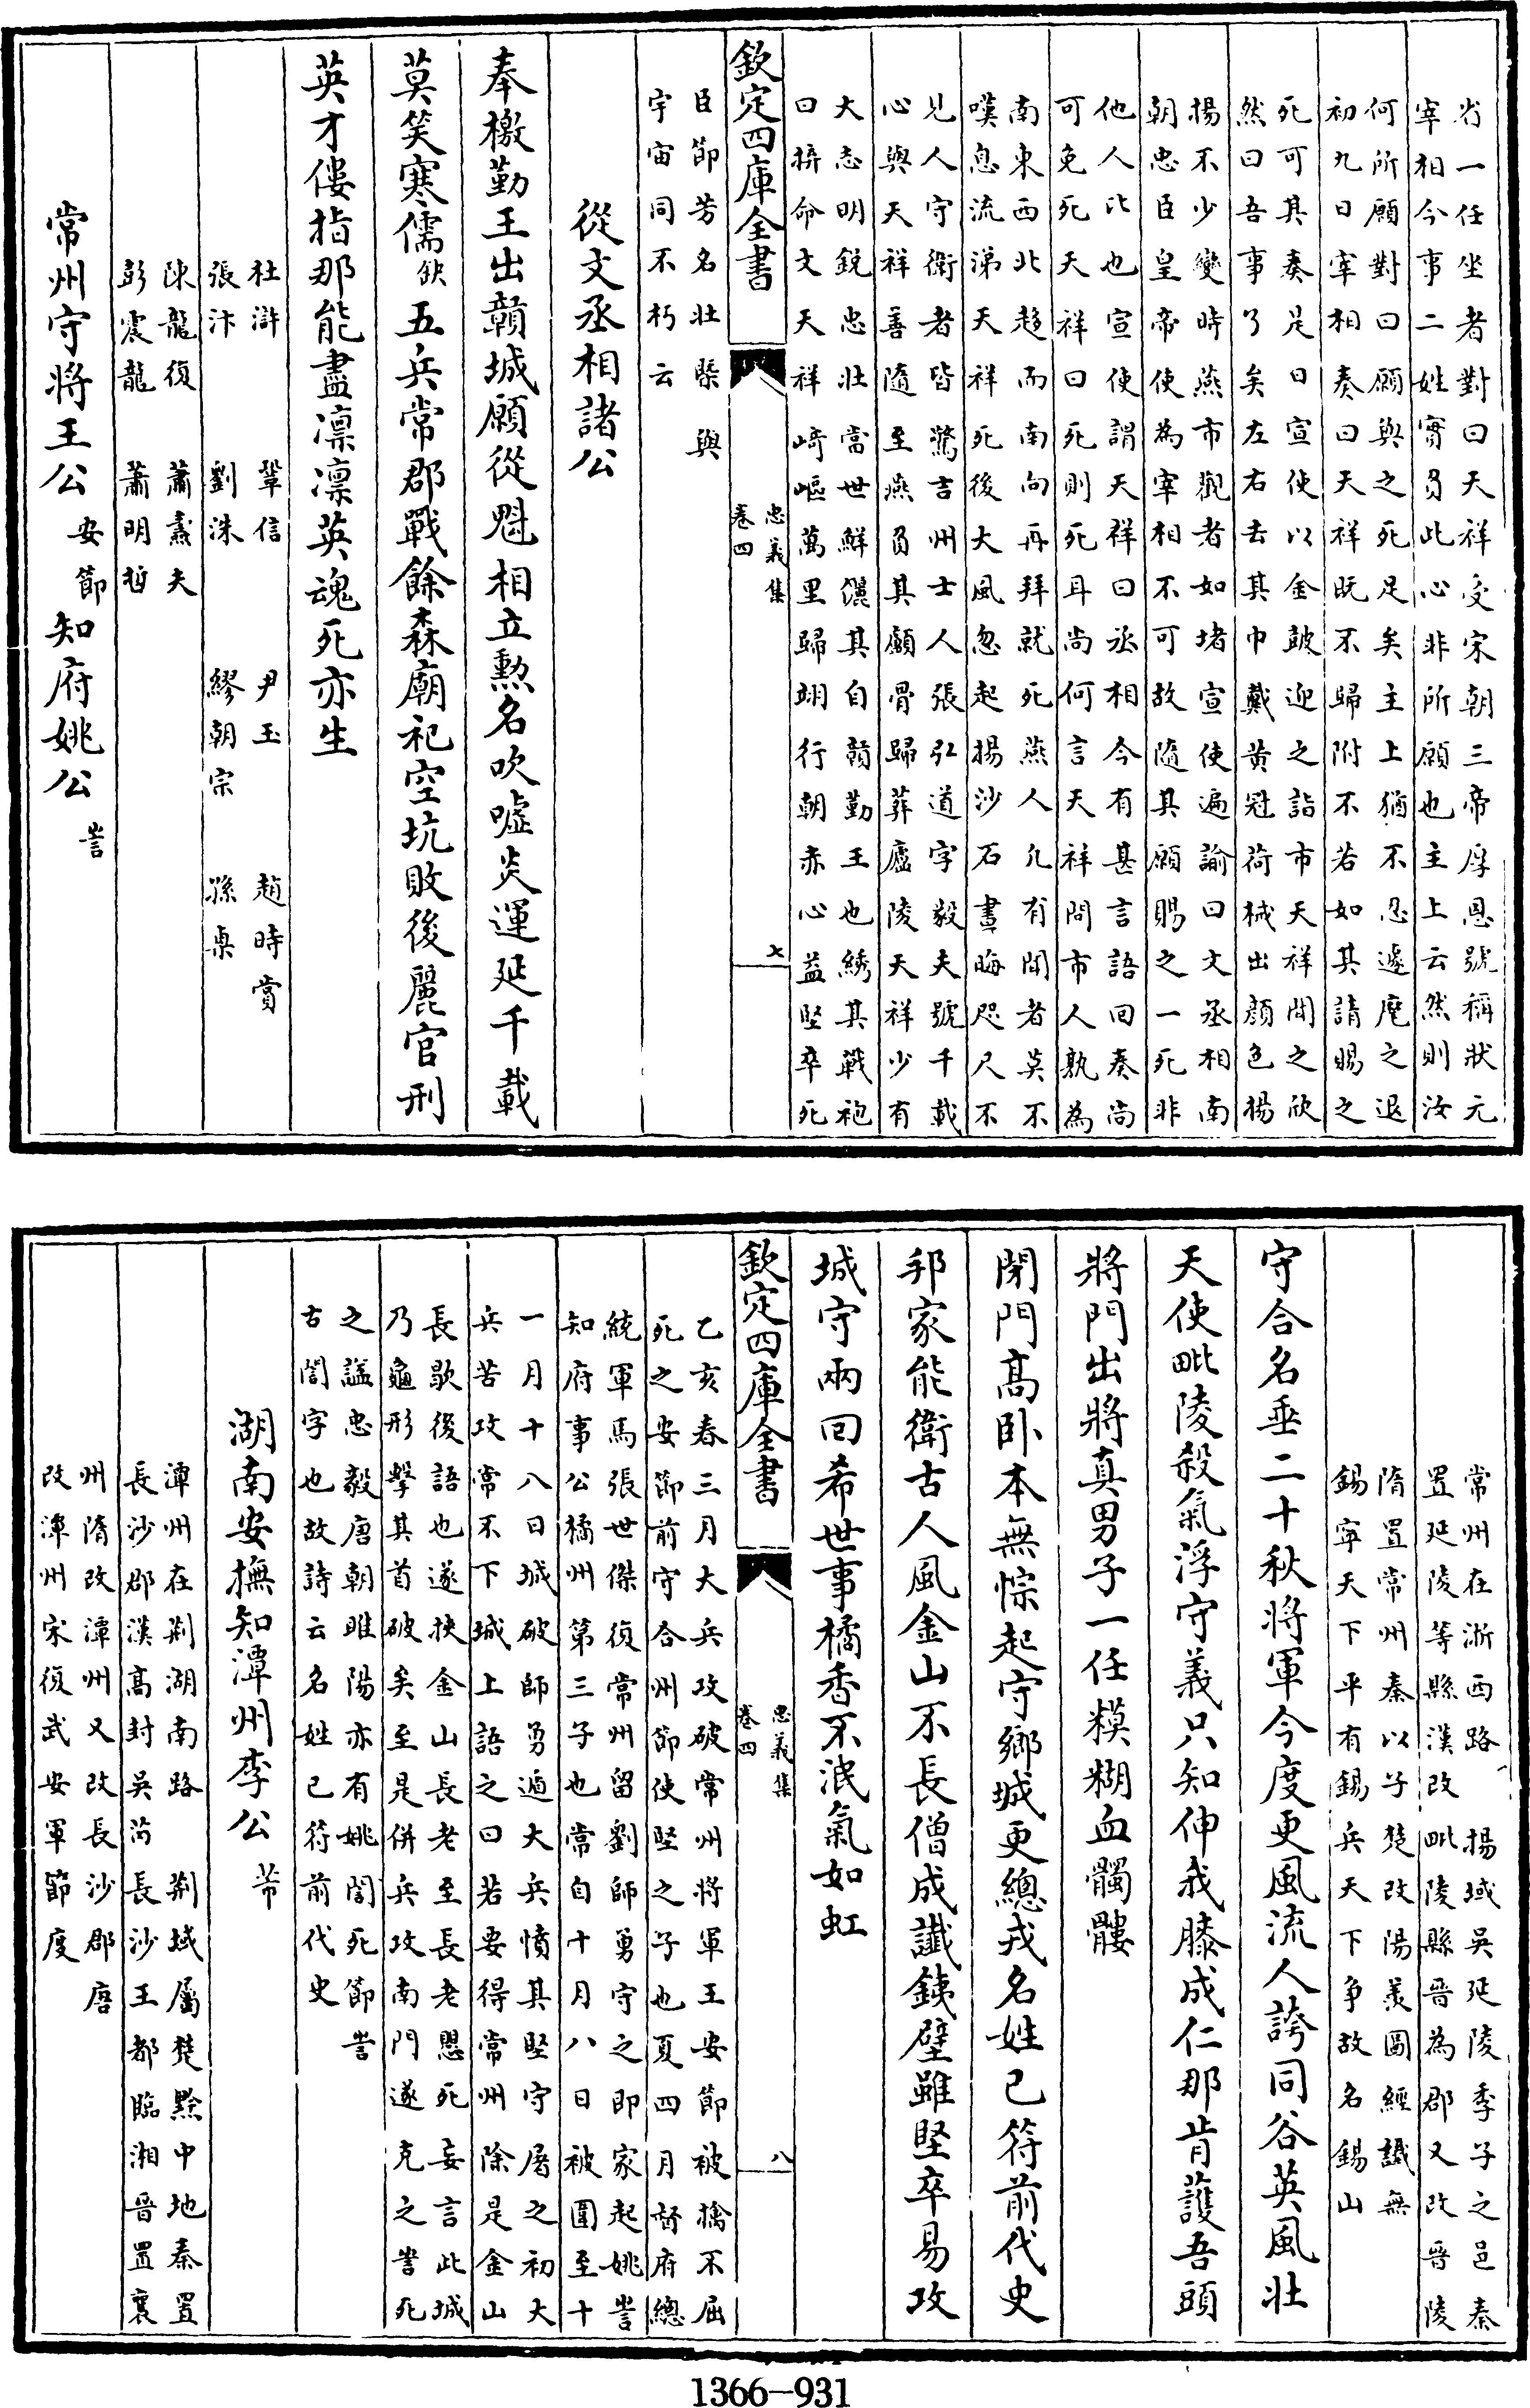 省一任坐者對曰天祥受宋朝三帝厚恩號稱狀元
宰相今事二姓實負此心非所願也主上云然則汝
何所願對曰願與之死足矣主上猶不忍遽麾之退
初九日宰相奏曰天祥既不歸附不若如其請賜之
死可其奏是日宣使以金鼓迎之詣市天祥聞之欣
然曰吾事了矣左右去其巾戴黄冠荷械出顔色揚
揚不少變時燕市觀者如堵宣使遍諭曰文丞相南
朝忠臣皇帝使為宰相不可故隨其願賜之一死非
他人比也宣使謂天祥曰丞相今有甚言語回奏尚
可免死天祥曰死則死耳尚何言天祥問市人孰為
南東西北趍而南向再拜就死燕人凡有聞者莫不
嘆息流涕天祥死後大風忽起揚沙石晝晦咫尺不
見人守衛者皆驚吉州士人張弘道字毅夫號千載
心與天祥善隨至燕負其顱骨歸葬廬陵天祥少有
大志明銳忠壯當世鮮儷其自贛勤王也綉其戰袍
曰拚命文天祥崎嶇萬里歸翊行朝赤心益堅卒死
欽定四庫全書
忠義集
卷四
七
臣節芳名壯槩與
宇宙同不朽云
從文丞相諸公
奉檄勤王出贛城願從魁相立勲名吹噓炎運延千載
莫笑寒儒缺五兵常郡戰餘森廟祀空坑敗後麗官刑
英才僂指那能盡凛凛英魂死亦生
杜滸 鞏信 尹玉 趙時賞
張汴 劉洙 繆朝宗 孫㮚
陳龍復 蕭燾夫
彭震龍 蕭明哲
常州守將王公安節知府姚公訔
常州在浙西路 揚域吳延陵季子之邑秦
置延陵等縣漢改毗陵縣晉為郡又改晉陵
隋置常州秦以子楚改陽羨圖經讖無
錫寧天下平有錫兵天下争故名錫山
守合名垂二十秋將軍今度更風流人誇同谷英風壯
天使毗陵殺氣浮守義只知伸我膝成仁那肯護吾頭
將門出將真男子一任糢糊血髑髏
閉門高卧本無悰起守鄉城更總戎名姓已符前代史
邦家能衛古人風金山不長僧成讖鐵壁雖堅卒易攻
城守兩回希世事橘香不泯氣如虹
欽定四庫全書
忠義集
卷四
八
乙亥春三月大兵攻破常州將軍王安節被擒不屈
死之安節前守合州節使堅之子也夏四月督府總
統軍馬張世傑復常州留劉師勇守之即家起姚訔
知府事公橘州第三子也常自十月八日被圍至十
一月十八日城破師勇遁大兵憤其堅守屠之初大
兵苦攻常不下城上語之曰若要得常州除是金山
長歇後語也遂挾金山長老至長老愳死妄言此城
乃龜形擊其首破矣至是併兵攻南門遂克之訔死
之謚忠毅唐朝睢陽亦有姚誾死節訔
古誾字也故詩云名姓已符前代史
湖南安撫知潭州李公芾
潭州在荆湖南路 荆域屬楚黔中地秦置
長沙郡漢高封吳芮長沙王都臨湘晉置襄
州隋改潭州又改長沙郡唐
改潭州宋復武安軍節度
1366-931